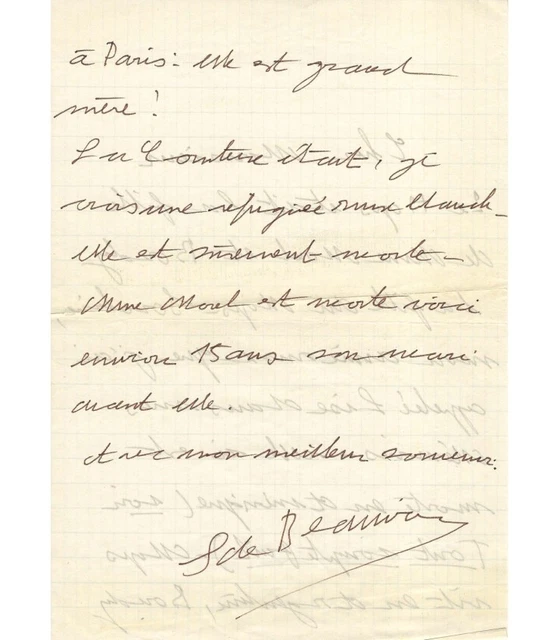 à Paris. elle est grand
mère !
La Comtesse était, je
crois une réfugiée russe blanche -
elle est sûrement morte -
Mme Morel est morte voici
environ 15 ans son mari
avant elle.
Avec mon meilleur souvenir.
S de Beauvoir